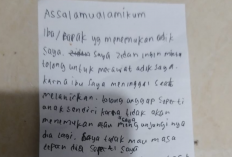 Assalamualaikum
Ibu/Bapak yg menemukan adik
saya. saya Zidan
tolong untuk merawat adik saya.
karna ibu saya meninggal saat
melahirkan. tolong anggap seperti
anak sendiri karna tidak akan
menemukan saya mengunjungi nya
lagi. saya tidak mau masa
depan dia seperti saya